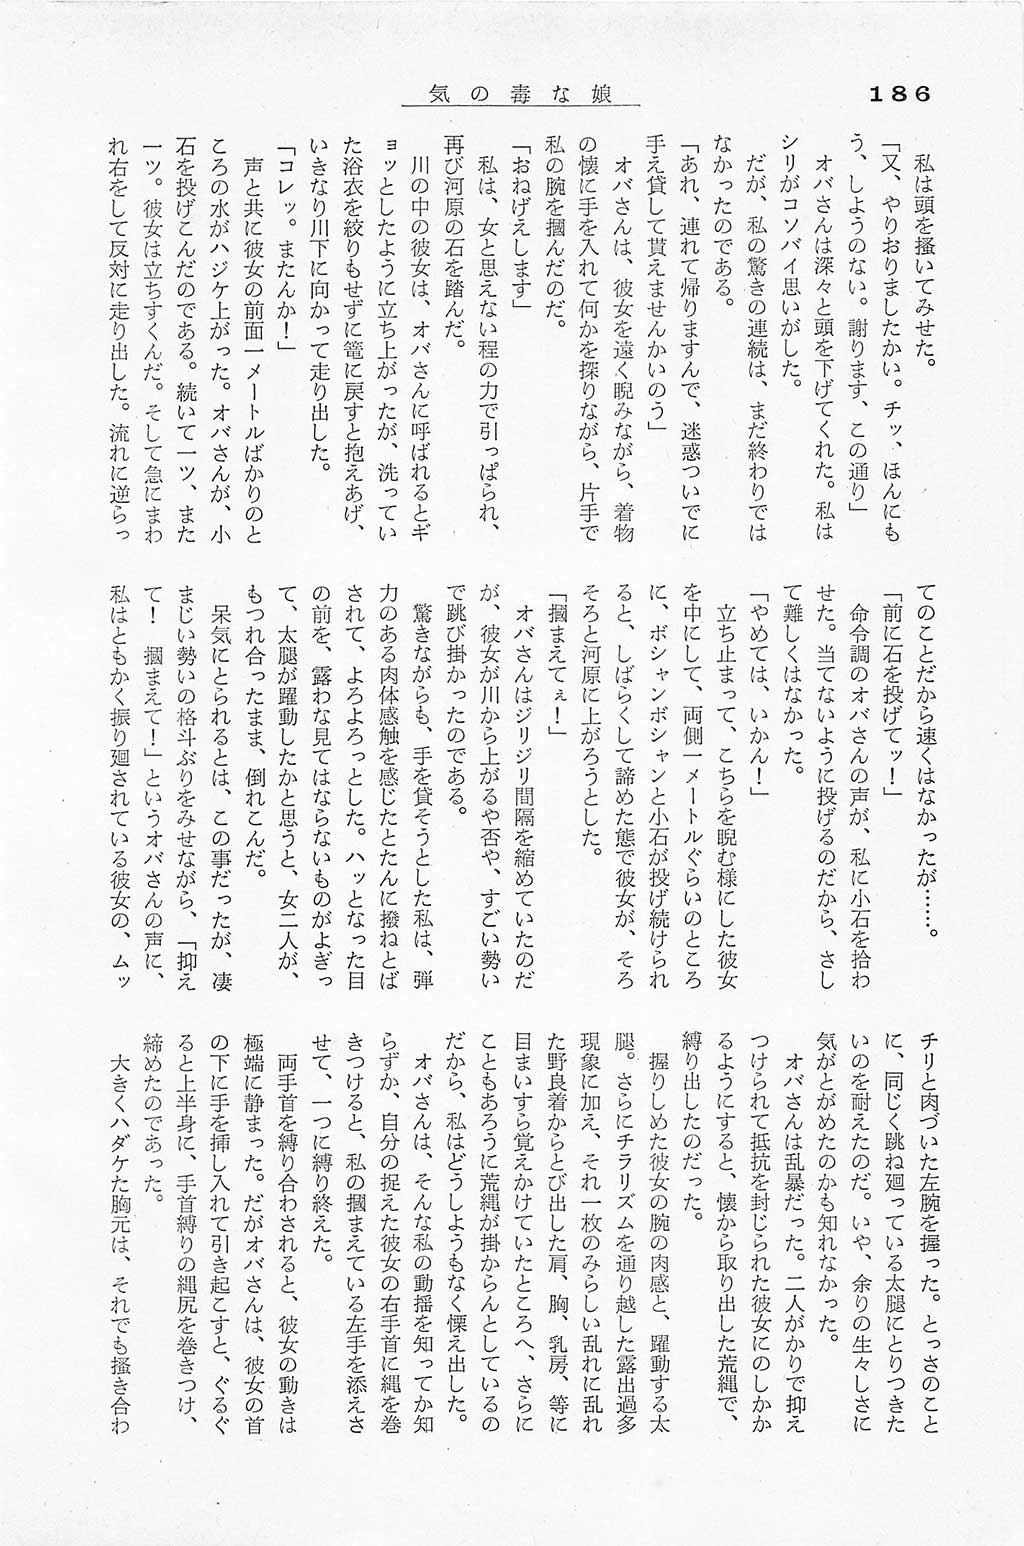 186
気の毒な娘
私は頭を掻いてみせた。
「又、やりおりましたかい。チッ、ほんにも
う、しようのない。謝ります、この通り」
オバさんは深々と頭を下げてくれた。私は
シリがコソバイ思いがした。
だが、私の驚きの連続は、まだ終わりでは
なかったのである。
「あれ、連れて帰りますんで、迷惑ついでに
手え貸して貰えませんかいのう」
オバさんは、彼女を遠く睨みながら、着物
の懐に手を入れて何かを探りながら、片手で
私の腕を摑んだのだ。
「おねげえします」
私は、女と思えない程の力で引っぱられ、
再び河原の石を踏んだ。
川の中の彼女は、オバさんに呼ばれるとギ
ョッとしたように立ち上がったが、洗ってい
た浴衣を絞りもせずに篭に戻すと抱えあげ、
いきなり川下に向かって走り出した。
「コレッ。またんか！」
声と共に彼女の前面一メートルばかりのと
ころの水がハジケ上がった。オバさんが、小
石を投げこんだのである。続いて一ツ、また
一ツ。彼女は立ちすくんだ。そして急にまわ
れ右をして反対に走り出した。流れに逆らっ
てのことだから速くはなかったが……。
「前に石を投げてッ！」
命令調のオバさんの声が、私に小石を拾わ
せた。当てないように投げるのだから、さし
て難しくはなかった。
「やめては、いかん！」
立ち止まって、こちらを睨む様にした彼女
を中にして、両側一メートルぐらいのところ
に、ボシャンボシャンと小石が投げ続けられ
ると、しばらくして諦めた態で彼女が、そろ
そろと河原に上がろうとした。
「摑まえてぇ！」
オバさんはジリジリ間隔を縮めていたのだ
が、彼女が川から上がるや否や、すごい勢い
で跳び掛かったのである。
驚きながらも、手を貸そうとした私は、弾
力のある肉体感触を感じたとたんに撥ねとば
されて、よろよろっとした。ハッとなった目
の前を、露わな見てはならないものがよぎっ
て、太腿が躍動したかと思うと、女二人が、
もつれ合ったまま、倒れこんだ。
呆気にとられるとは、この事だったが、凄
まじい勢いの格斗ぶりをみせながら、「抑え
て！　摑まえて！」というオバさんの声に、
私はともかく振り廻されている彼女の、ムッ
チリと肉づいた左腕を握った。とっさのこと
に、同じく跳ね廻っている太腿にとりつきた
いのを耐えたのだ。いや、余りの生々しさに
気がとがめたのかも知れなかった。
オバさんは乱暴だった。二人がかりで抑え
つけられて抵抗を封じられた彼女にのしかか
るようにすると、懐から取り出した荒縄で、
縛り出したのだった。
握りしめた彼女の腕の肉感と、躍動する太
腿。さらにチラリズムを通り越した露出過多
現象に加え、それ一枚のみらしい乱れに乱れ
た野良着からとび出した肩、胸、乳房、等に
目まいすら覚えかけていたところへ、さらに
こともあろうに荒縄が掛からんとしているの
だから、私はどうしようもなく慄え出した。
オバさんは、そんな私の動揺を知ってか知
らずか、自分の捉えた彼女の右手首に縄を巻
きつけると、私の摑まえている左手を添えさ
せて、一つに縛り終えた。
両手首を縛り合わされると、彼女の動きは
極端に静まった。だがオバさんは、彼女の首
の下に手を挿し入れて引き起こすと、ぐるぐ
ると上半身に、手首縛りの縄尻を巻きつけ、
締めたのであった。
大きくハダケた胸元は、それでも搔き合わ